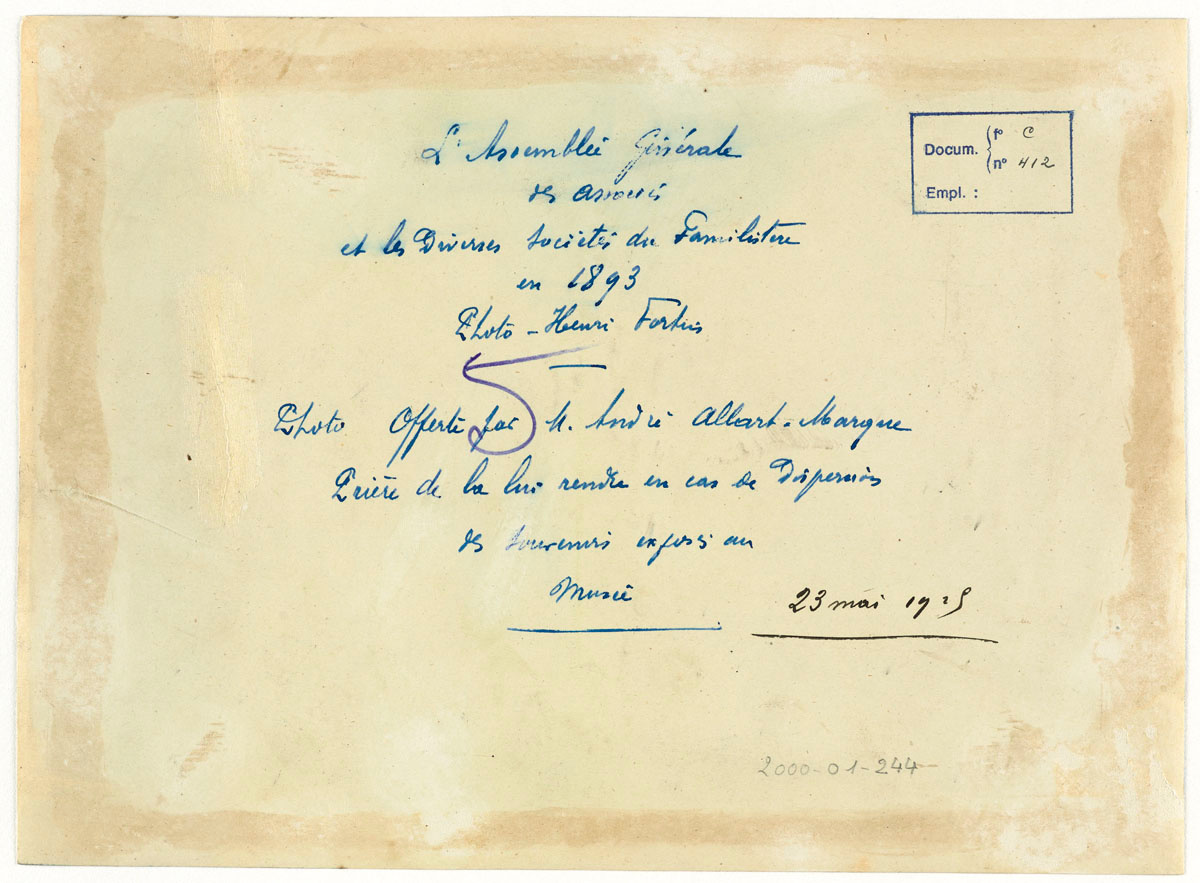 L'Assemblée Générale
des associés
et les Diverses Sociétés du Familistère
en 1893
Photo - Henri
Photo Offerte par M. André Allart-Marque
Prière de la lui rendre en cas de Dispersion
des souvenirs exposés au
Musée
23 mai 19
Docum. { fo C
no 412
Empl. :
2000-01-244